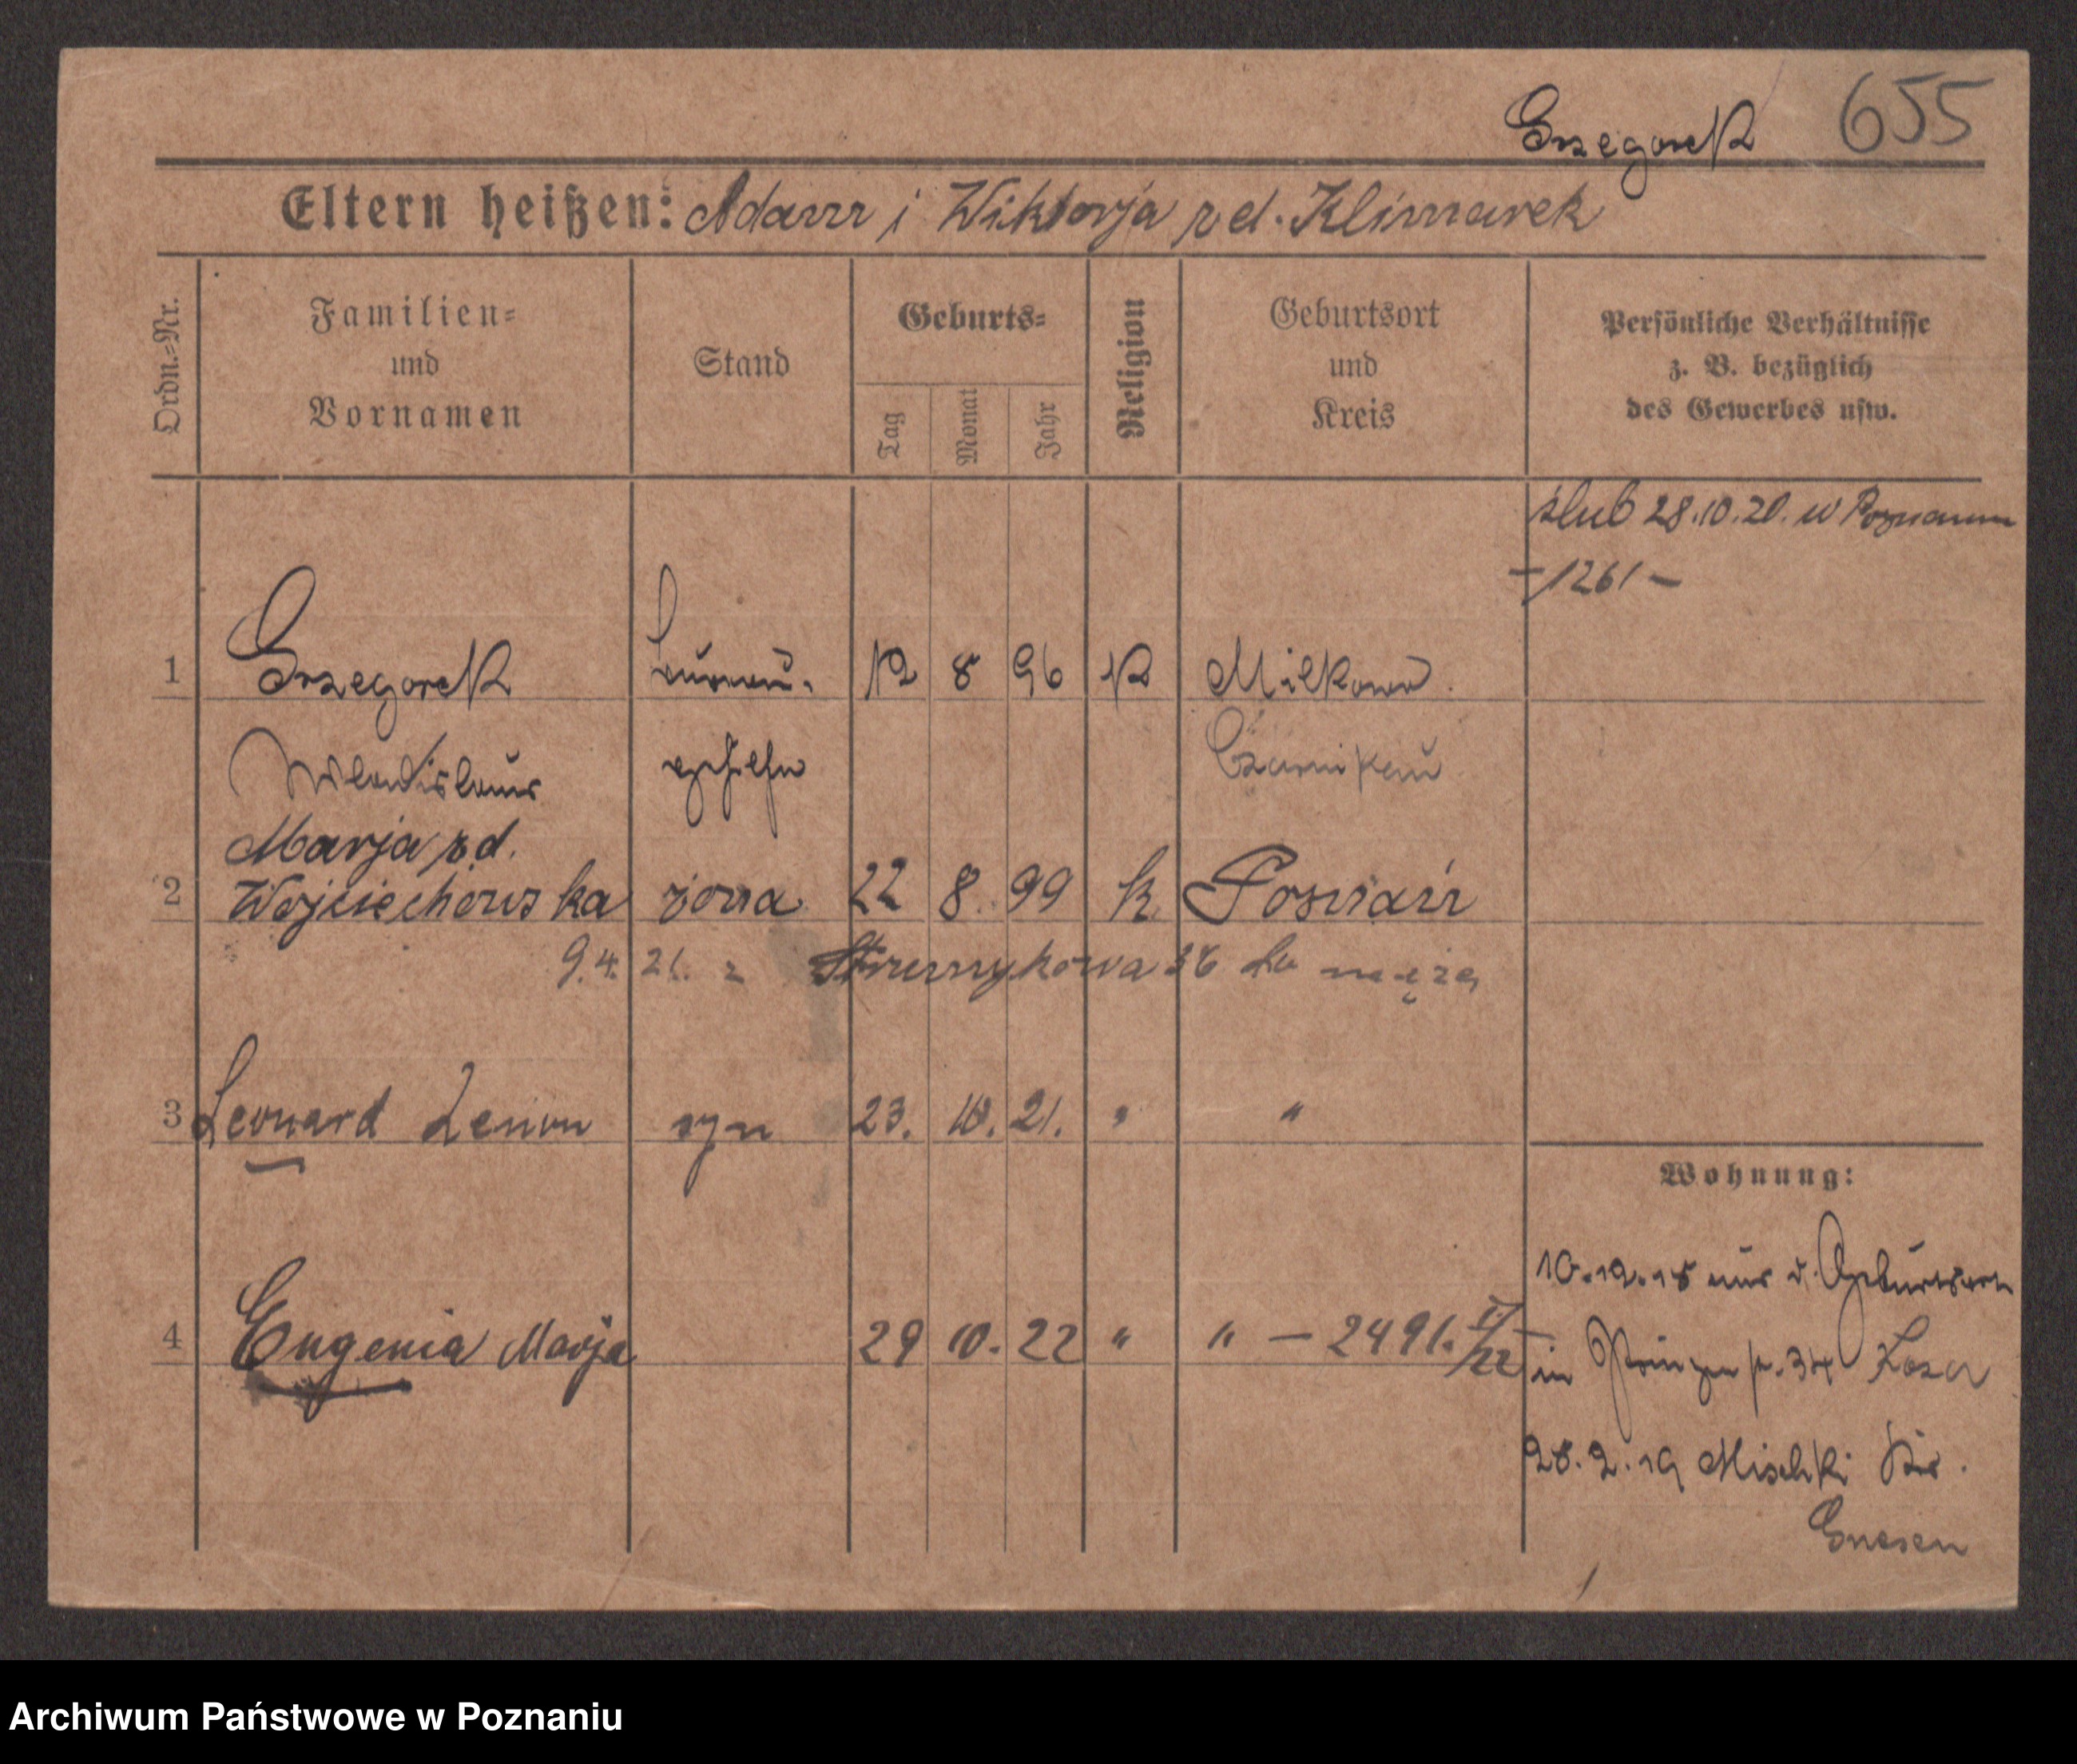 Grzegorek 655
Eltern heißen: Adam i Wiktorja zd. Klimarek
Ordn.-Nr.
Familien-
und
Vornamen
Stand
Geburts-
Tag
Monat
Jahr
Religion
Geburtsort
und
Kreis
Persönliche Verhältnisse
z. B. bezüglich
des Gewerbes usw.
ślub 28.10.20. w Poznaniu
-1261-
1 Grzegorek 12 8 96 K Milkowo.
Wladislaus Czarnikau
Marja zd.
2 Wojciechowska żona 22 8. 99 k Poznań
9.4. 21. z 38 do męża
3 Leonard Zenon syn 23. 10. 21. " "
Wohnung:
10.12.18 aus d. Geburtsort
4 Eugenia Marja 29 10. 22 " " - 2491. VI/22 -
in Prinzen str. 34
28.2.19 Mischki Krs.
Gnesen
Archiwum Państwowe w Poznaniu